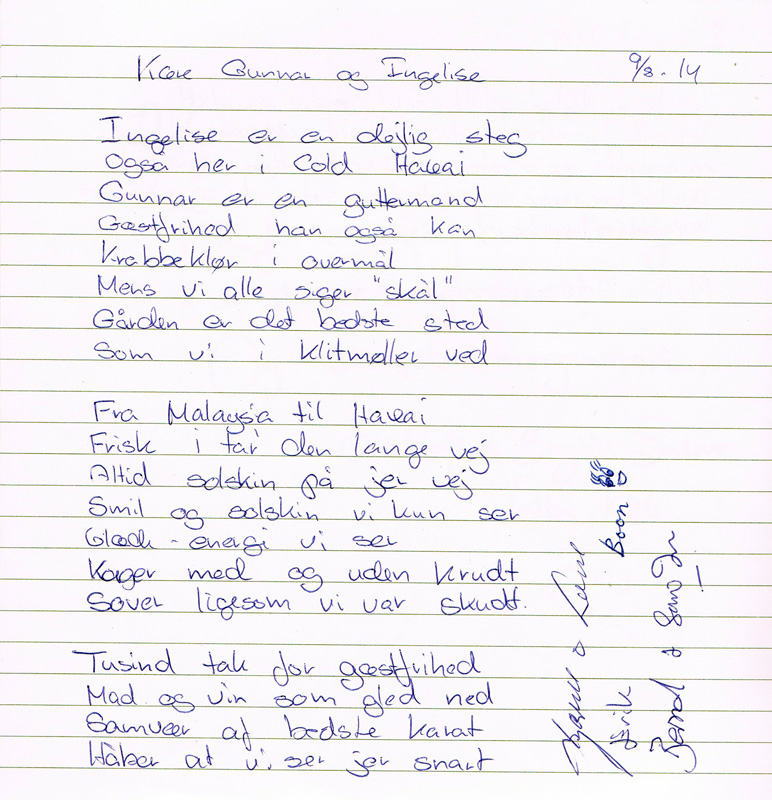 Kære Gunnar og Ingelise 9/8-14
Ingelise er en dejlig steg
Også her i Cold Hawai
Gunnar er en guttermand
Gæstfrihed han også kan
Krabbeklør i overmål
Mens vi alle siger "skål"
Gården er det bedste sted
Som vi i Klitmøller ved
Fra Malaysia til Hawai
Frisk i får den lange vej
Altid solskin på jer vej
Smil og solskin vi kun ser
Glæde-energi vi ser
Kager med og uden krudt
Sover ligesom vi var skudt.
Tusind tak for gæstfrihed
Mad og vin som gled ned
Samvær af bedste karat
Håber at vi ser jer snart
&
Erik Boon
Bernd &